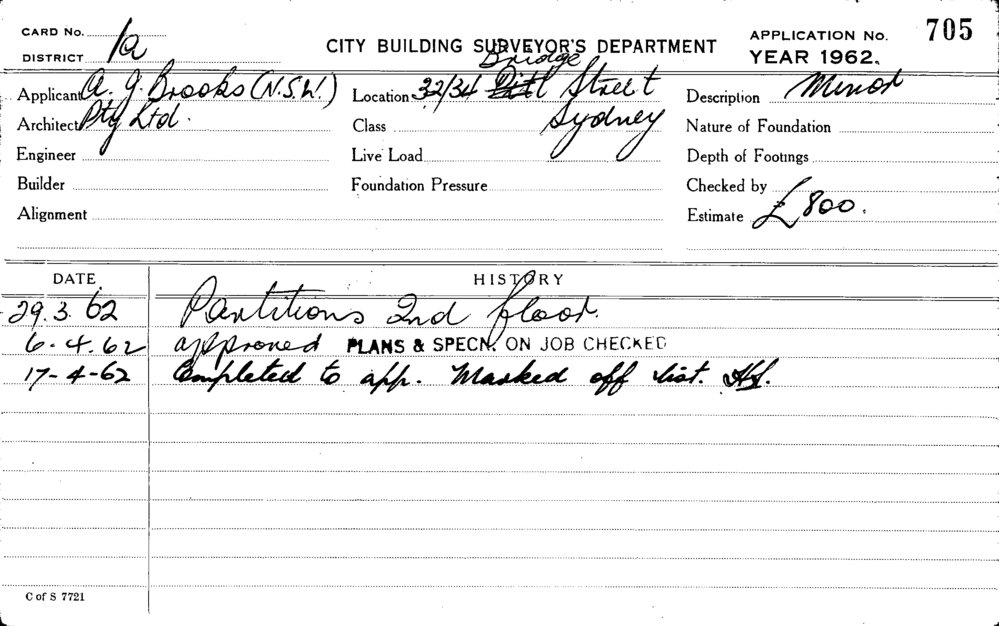 CARD No.
DISTRICT 1a
CITY BUILDING SURVEYOR'S DEPARTMENT
APPLICATION No. 705
YEAR 1962.
Applicant A. J. Brooks (N.S.W.)
Architect Pty Ltd.
Engineer
Builder
Alignment
Bridge
Location 32/34 Pitt Street
Class Sydney
Live Load
Foundation Pressure
Description Minor
Nature of Foundation
Depth of Footings
Checked by
Estimate £800.
DATE HISTORY
29.3.62 Partitions 2nd floor.
6.4.62 approved PLANS & SPECN. ON JOB CHECKED
17-4-62 Completed to app. Marked off list.
C of S 7721